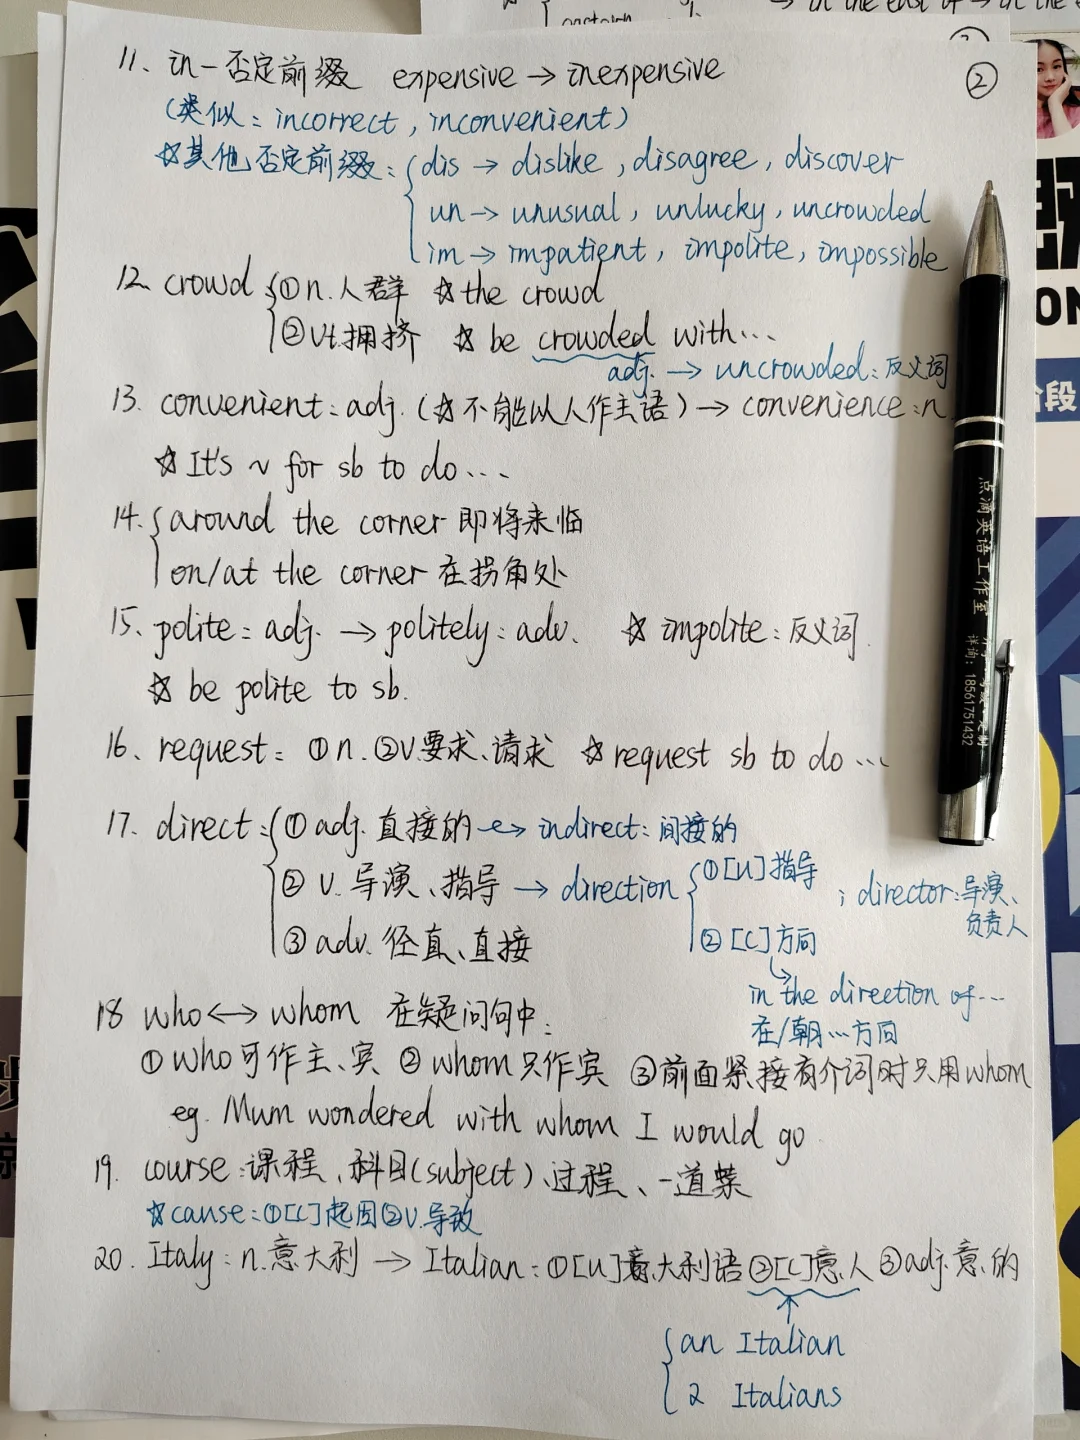 → in the east of → in the
eastern
②
11、in－否定前缀 expensive → inexpensive
(类似：incorrect, inconvenient)
☆其他否定前缀：{dis → dislike, disagree, discover
un → unusual, unlucky, uncrowded
im → impatient, impolite, impossible
12、crowd {①n.人群 ☆ the crowd
②Vt.拥挤 ☆ be crowded with…
adj. → uncrowded：反义词
13、convenient：adj.(☆不能以人作主语) → convenience：n
☆ It's ~ for sb to do…
14、{around the corner 即将来临
on/at the corner 在拐角处
15、polite：adj. → politely：adv. ☆ impolite：反义词.
☆ be polite to sb.
16、request：①n.②V.要求、请求 ☆ request sb to do …
17、direct：{①adj.直接的 ↔ indirect：间接的
②V.导演、指导 → direction {①[U]指导
；director：导演、负责人
③adv.径直、直接
②[C]方向
in the direction of…
在/朝…方向
18 who ↔ whom 在疑问句中：
①who可作主、宾 ②whom只作宾 ③前面紧接有介词时只用whom
eg. Mum wondered with whom I would go
19. course：课程、科目(subject)、过程、一道菜
☆cause：①[C]起因②V.导致
20. Italy：n.意大利 → Italian：①[U]意大利语②[C]意.人③adj.意.的
{an Italian
2 Italians
点滴英语工作室
详询：18561751432
阶段
ON